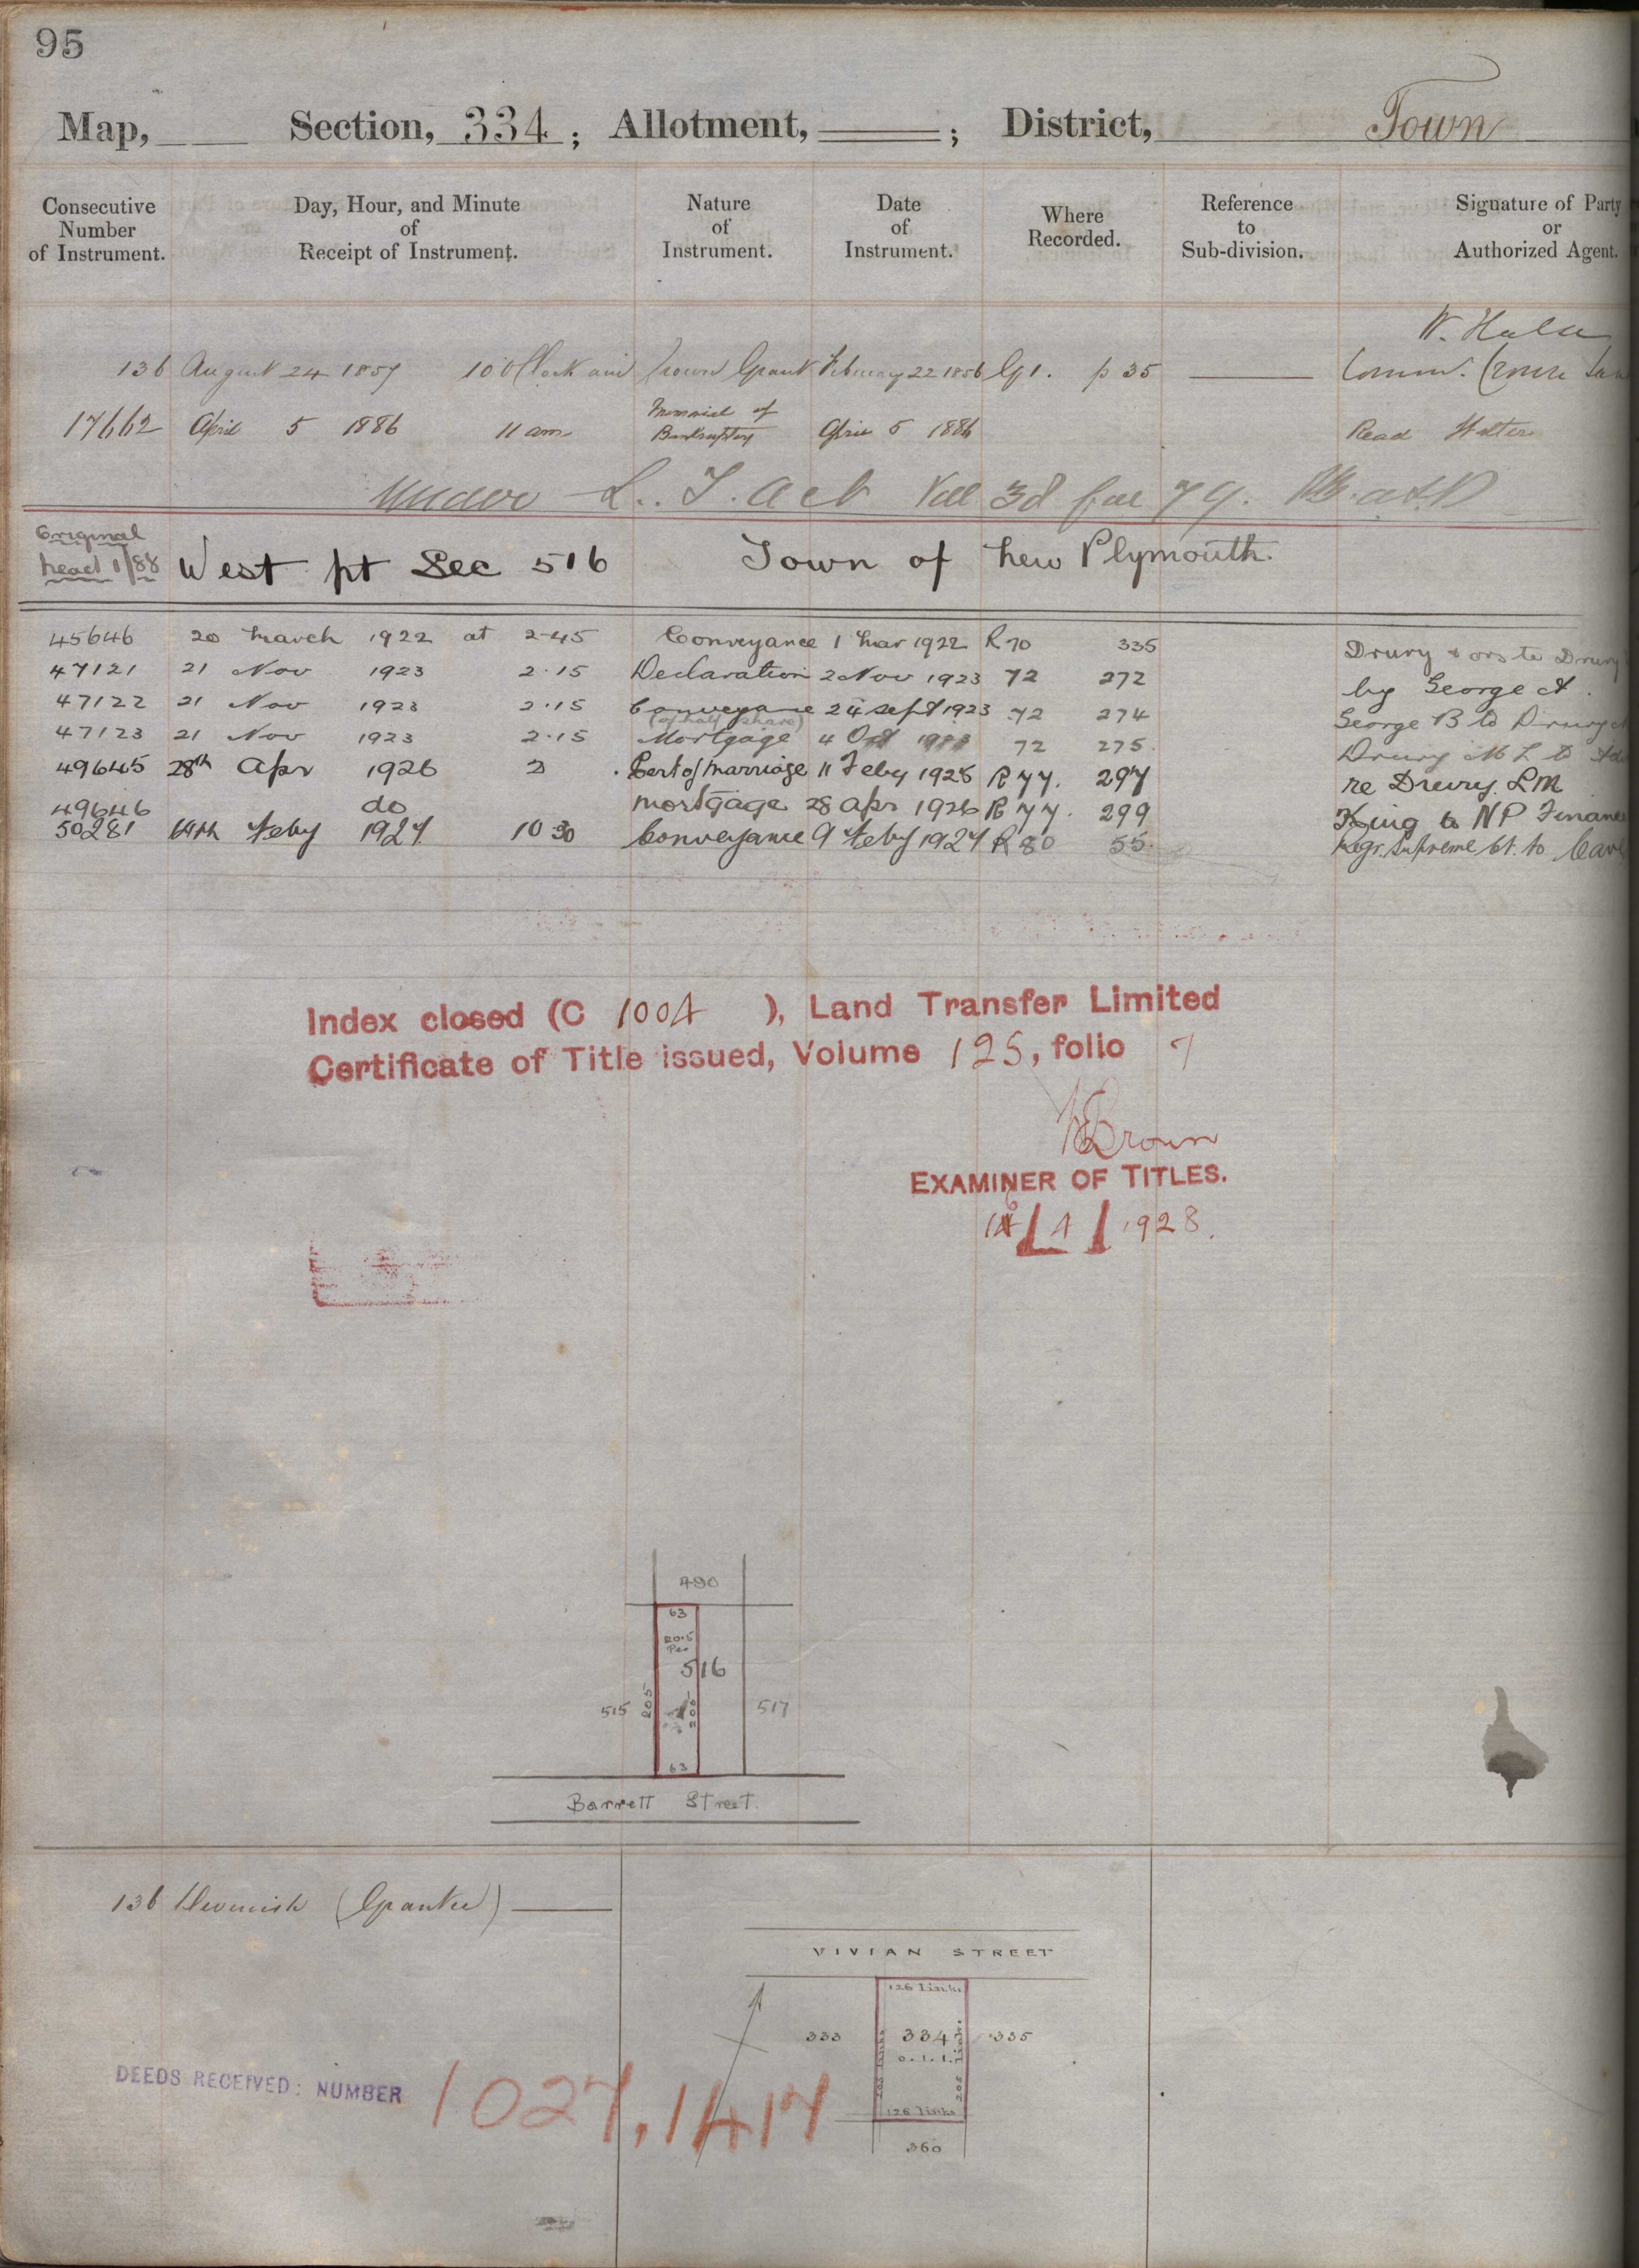 95
Map, Section, 334 ; Allotment, ; District, Town
Consecutive Number of Instrument.
Day, Hour, and Minute of Receipt of Instrument.
Nature of Instrument.
Date of Instrument.
Where Recorded.
Reference to Sub-division.
Signature of Party or Authorized Agent.
136 August 24 1857 10 O'Clock Crown Grant February 22 1856 G1. p 35 W. Halse Commr. Crown
17662 April 5 1886 11 am Memorial of Bankruptcy April 5 1886 Read Walter
Under L. T. Act Vol 38 fol 79.
Original head 1/88 West pt Sec 516 Town of New Plymouth.
45646 20 March 1922 at 2-45 Conveyance 1 Mar 1922 R 70 335 Drury & ors to Drury
47121 21 Nov 1923 2.15 Declaration 2 Nov 1923 72 272 by George A.
47122 21 Nov 1923 2.15 Conveyance 24 Sept 1923 72 274 George B to Drury
(of half share)
47123 21 Nov 1923 2.15 Mortgage 4 Oct 1923 72 275. Drury M L to
49645 28th Apr 1926 2 Cert of Marriage 11 Feby 1926 R 77. 297 re Drury. L M
49646 do Mortgage 28 Apr 1926 R 77. 299 King to N P Finance
50281 Feby 1927 10 30 Conveyance 9 Feby 1927 R 80 55. Regr. Supreme Ct. to
Index closed (C 1004 ), Land Transfer Limited
Certificate of Title issued, Volume 125, folio 7
Brown
EXAMINER OF TITLES.
4 1928.
490
63
20.5
Per
516
515 205 205 517
63
Barrett Street.
136 Devenish (Grantee)
VIVIAN STREET
126 links
333 334 335
0.1.1.
205 links 205 links
126 links
360
DEEDS RECEIVED: NUMBER 1027, 1417